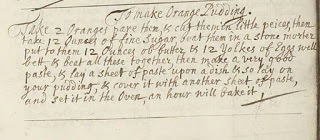 To make Orange Pudding.
Take 2 Oranges pare them & cut them in little peices, then
take 12 Ounces of fine Sugar, beat them in a stone morter
put to them 12 Ounces of butter, & 12 Yolkes of Eggs well
bett, & beat all these together, then make a very good
paste, & lay a sheet of paste upon a dish & so lay on
your pudding, & cover it with another sheet of paste,
and set it in the Oven, an hour will bake it,